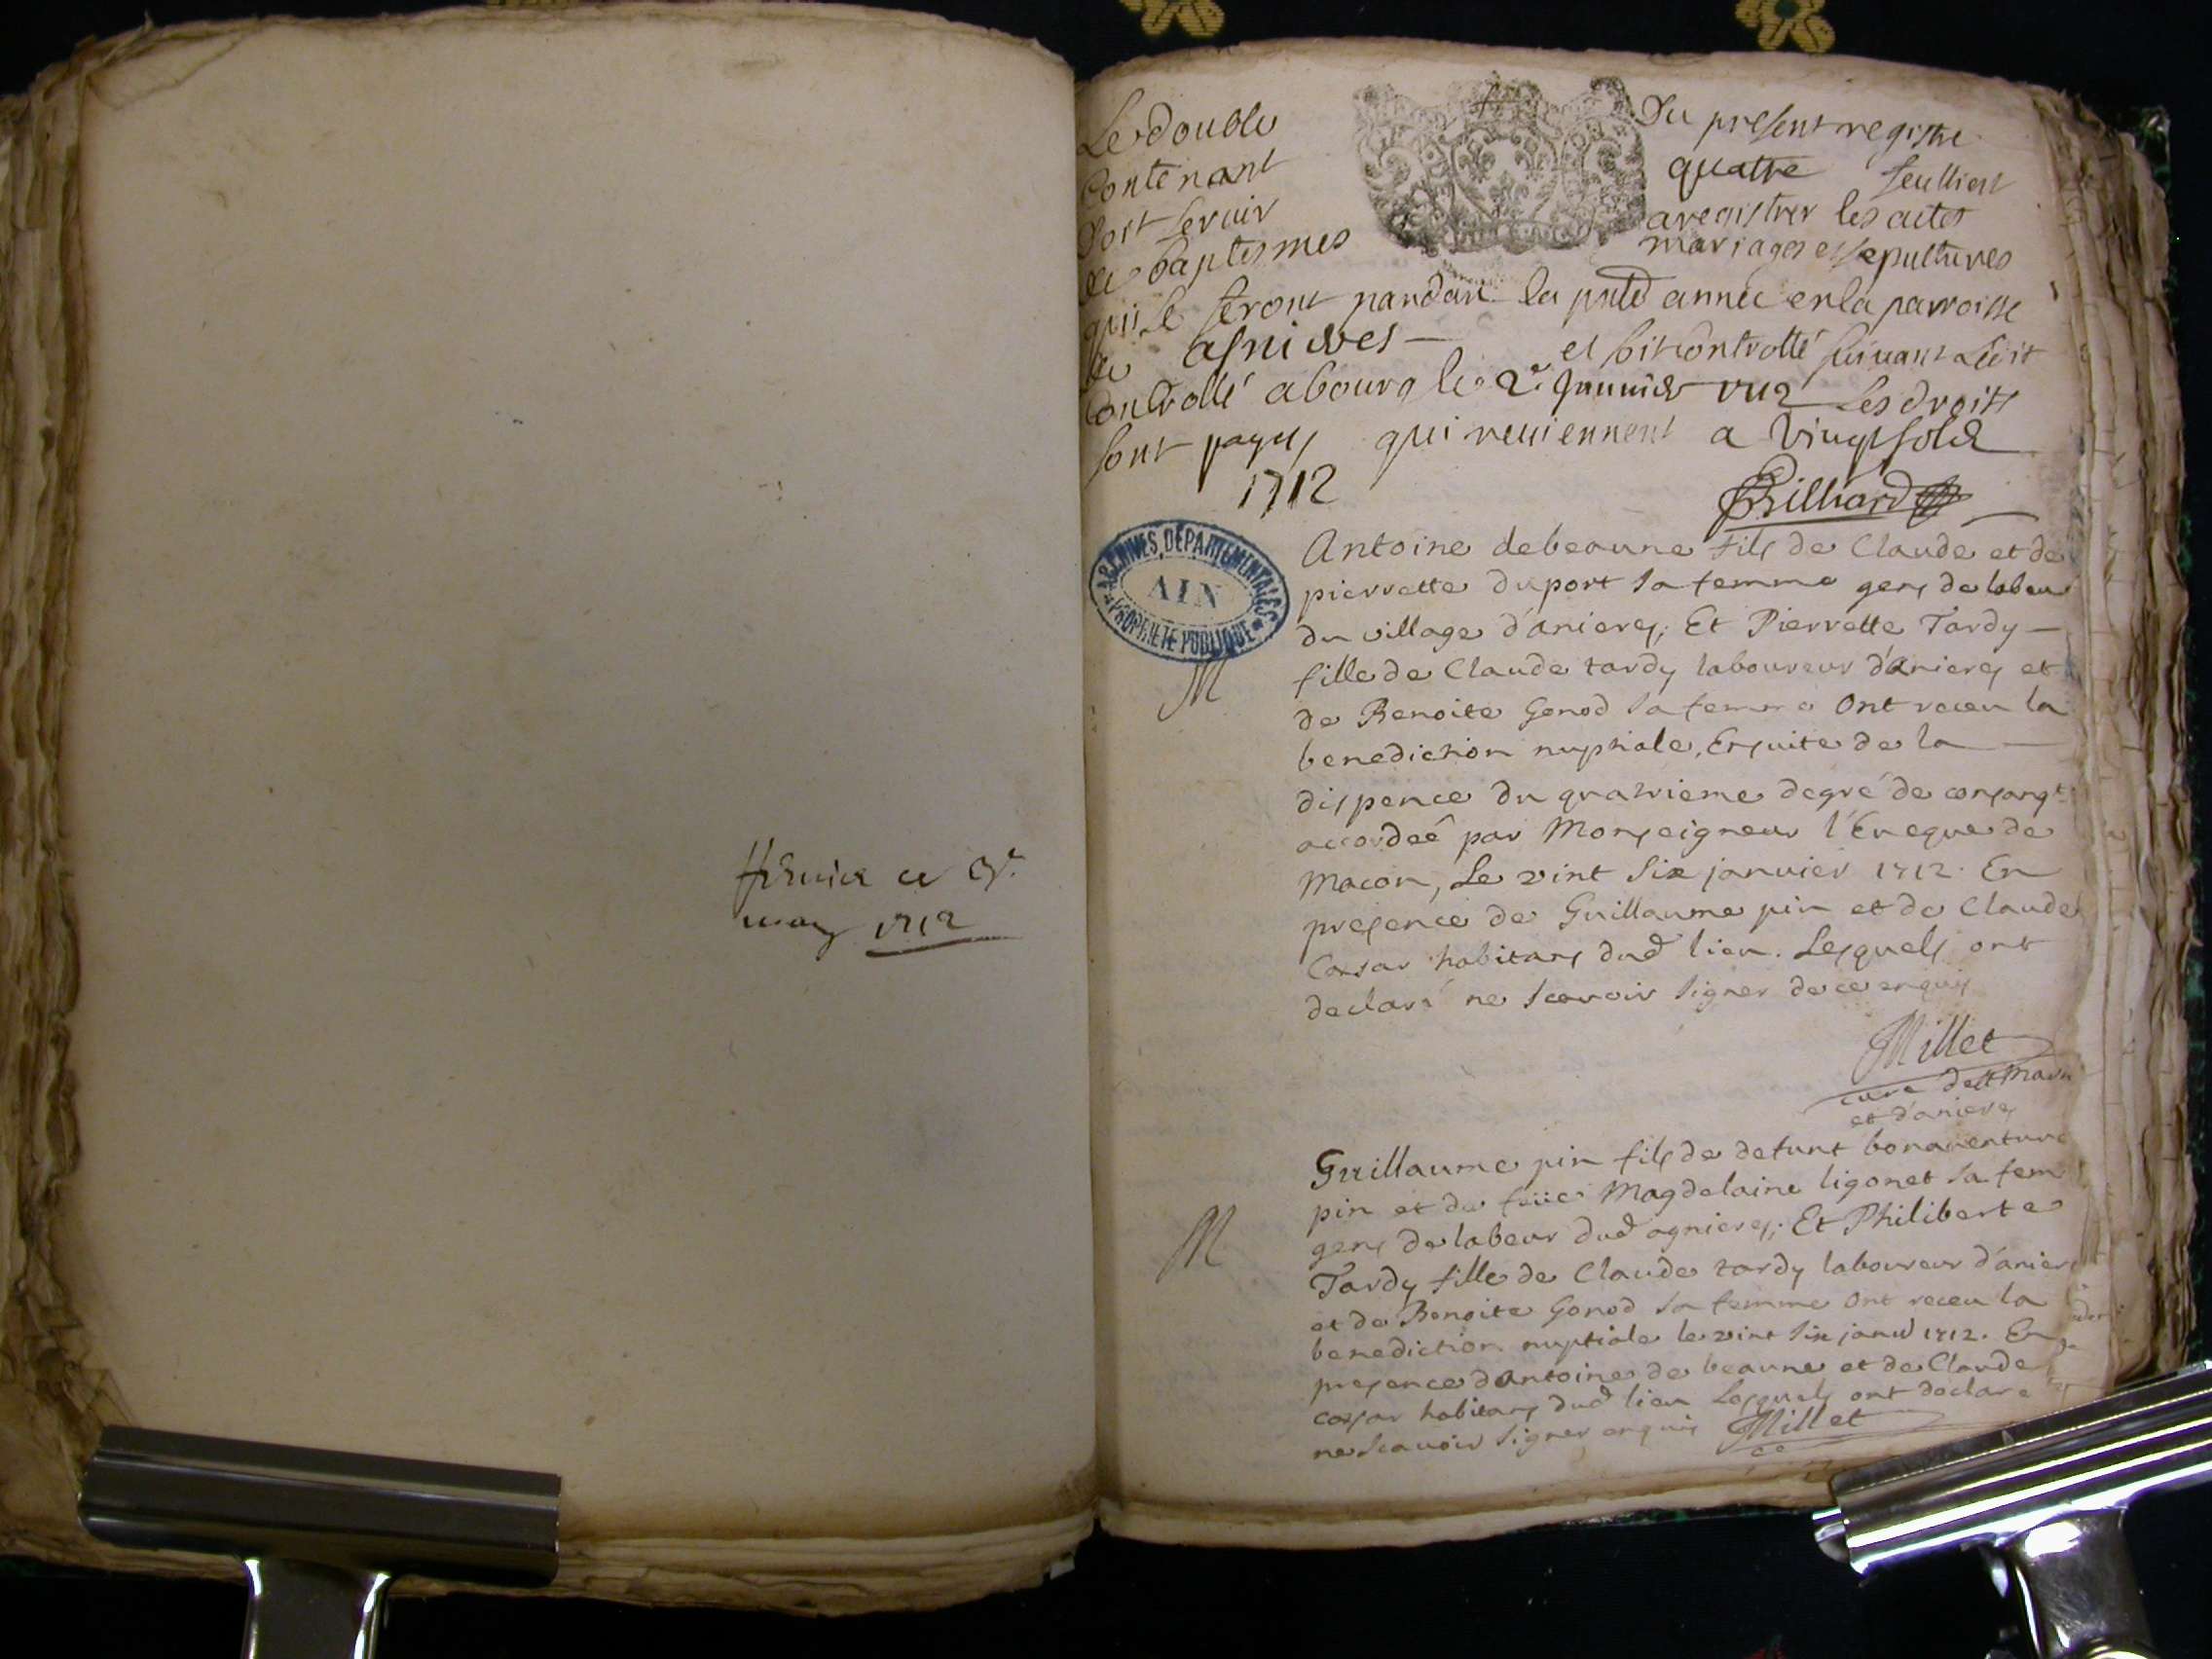 ce 3e
may 1712
Le double Du present registre
Contenant quatre feullietz
Doit servir a registrer les actes
de baptesmes mariages et sepultures
qui se feront pandant la pnte année en la parroisse
de asnieres — et soit controllé suivant Ledit
Controllé a bourg le 2e Janvier 1712 Les droitz
sont payes qui reviennent a vingt solz
1712
Brilliard
ARCHIVES DÉPARTEMENTALES
AIN
PROPRIÉTÉ PUBLIQUE
Antoine debeaune fils de Claude et de
pierrette duport sa femme gens de labeur
du village d'anieres; Et Pierrette Tardy —
M
fille de Claude tardy laboureur d'anieres et
de Benoite Gonod sa femme Ont receu la
benediction nuptiale, Ensuite de la —
dispence du quatrieme degré de consangt
accordeê par Monseigneur l'Eveque de
Macon, Le vint six janvier 1712. En
presence de Guillaume pin et de Claude
Corsar habitans dud lieu. Lesquels ont
declaré ne scavoir signer de ce enquis
Millet
curé de st Mar
et d'anieres
Guillaume pin fils de defunt bonaventure
pin et de feüe Magdelaine ligonet sa fem
M
gens de labeur dud agnieres; Et Philiberte
Tardy fille de Claude tardy laboureur d'aniere
et de Benoite Gonod sa femme Ont receu la
benediction nuptiale le vint six janv 1712. En
presence d'Antoine de beaune et de Claude
corsar habitans dud lieu Lesquels ont declaré
ne scavoir signer enquis Millet